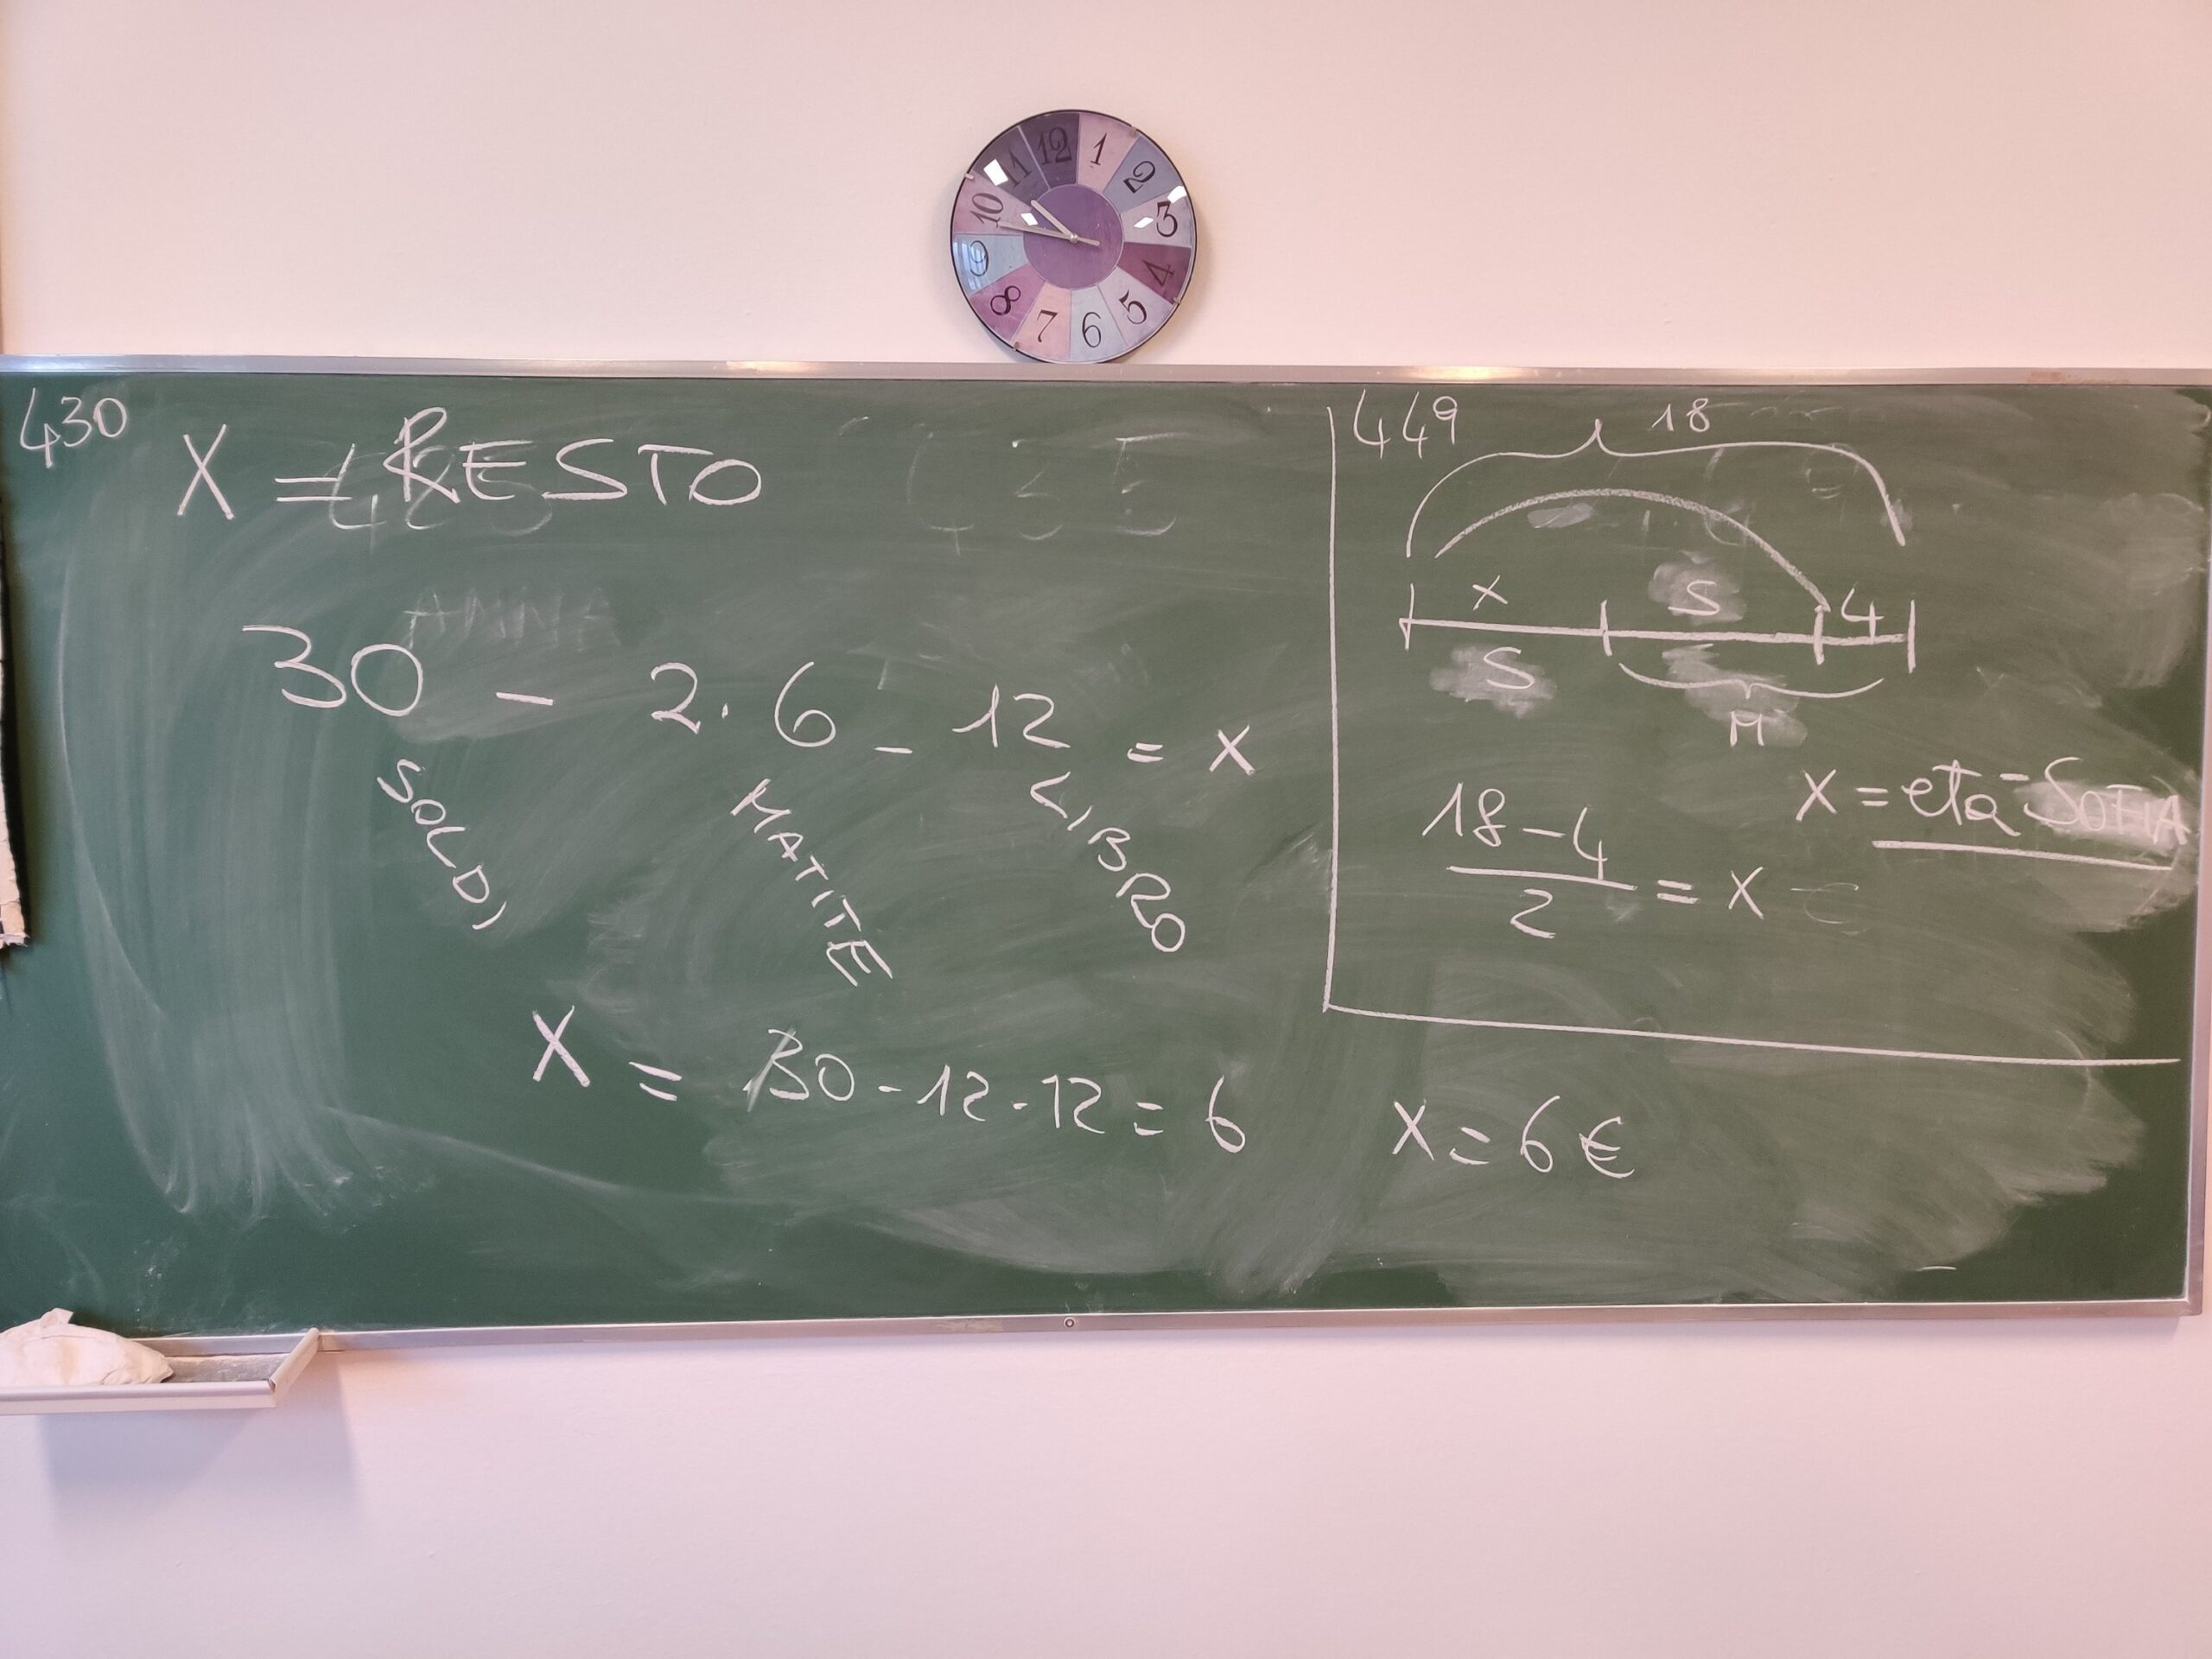 12
1
2
3
4
5
6
7
8
9
10
11
430
X = RESTO
30 - 2 · 6 - 12 = x
SOLDI MATITE LIBRO
X = 30 - 12 - 12 = 6
X = 6 €
449
18
x S 4
S M
X = eta SOFIA
18 - 4
2
= X